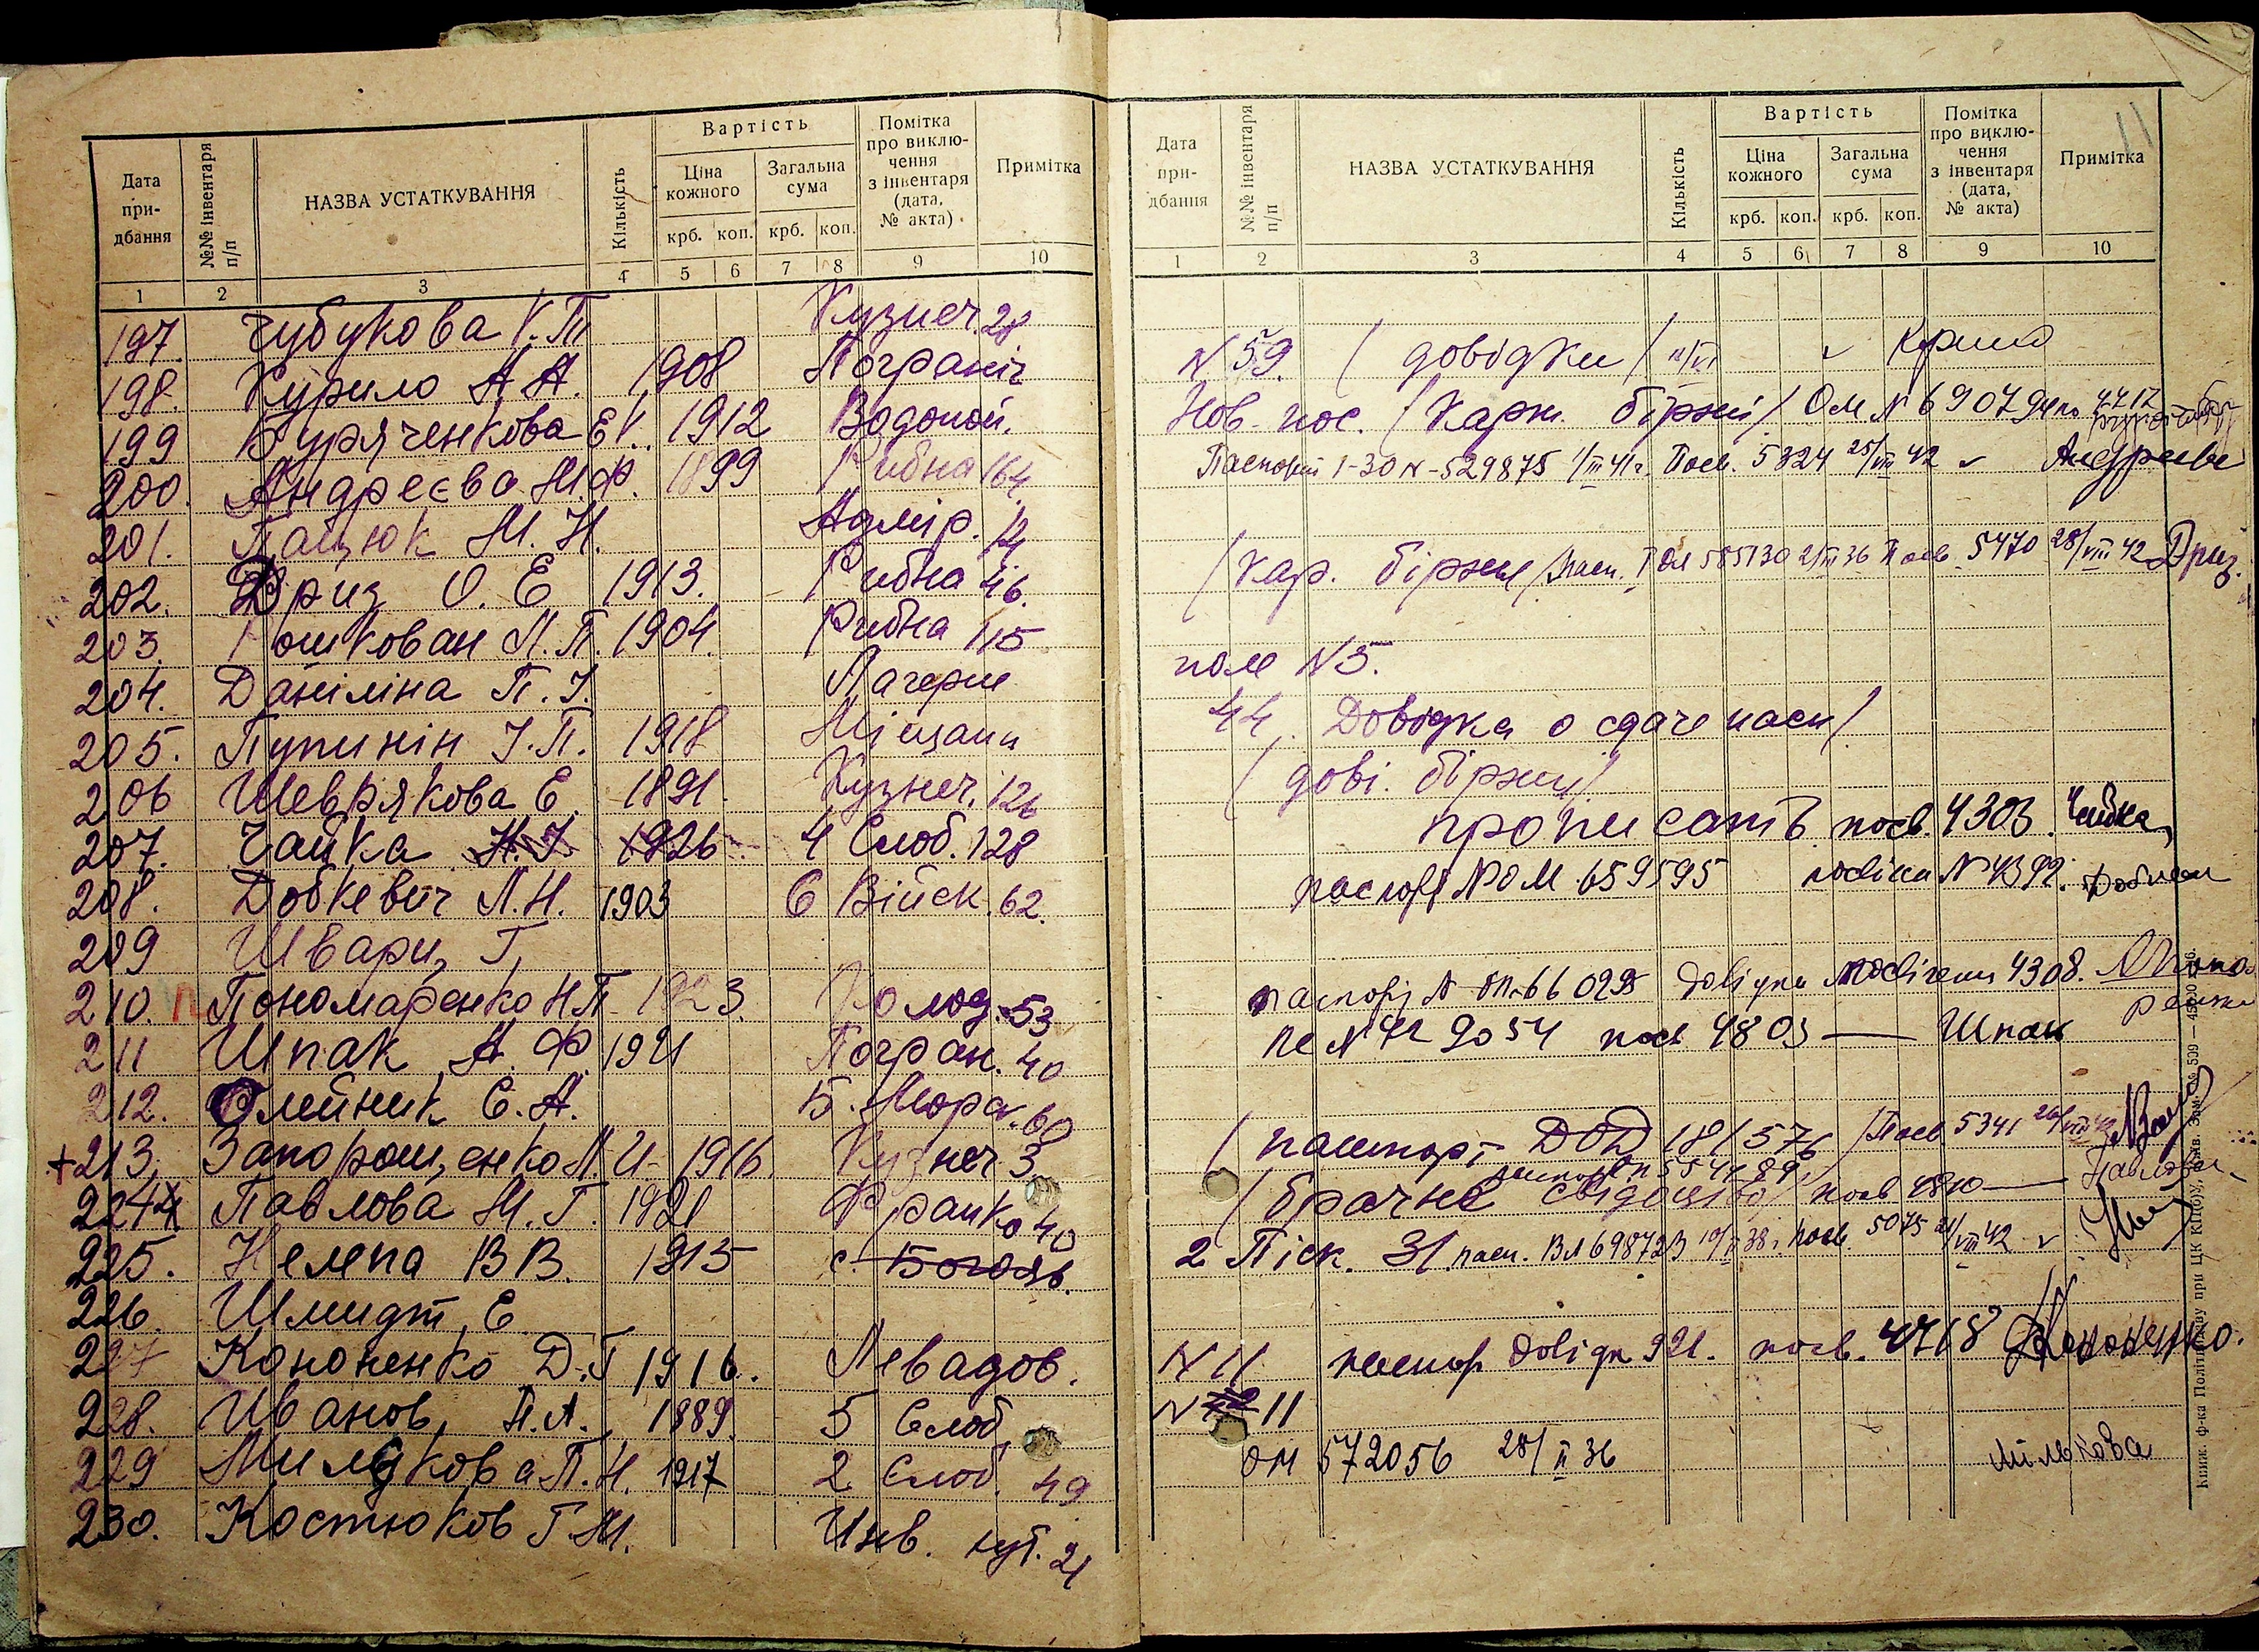 Дата придбання
№№ інвентаря п/п
НАЗВА УСТАТКУВАННЯ
Кількість
Вартість
Ціна кожного
Загальна сума
крб. коп. крб. коп.
Помітка про виключення з інвентаря (дата, № акта)
Примітка
1 2 3 4 5 6 7 8 9 10
197. Чубукова К.П. Кузнеч. 28
198. Курило А.А. 1908 Погранiч
199 Буряченкова Е.К. 1912 Водопой.
200. Андреєва М.Ф. 1899 Рибна 164
201. Пацюк М.Н. Адмір. 14
202. Дриз О.Е 1913. Рибна 46.
203. Рошкован Л.П. 1904. Рибна 115
204. Даніліна П.І. Лагерне
205. Пупинін І.П. 1918 Міщани
206 Шеврякова Е. 1891. Кузнеч. 126
207. Чайка Н.І. 1926. 4 Слоб. 128
208. Добкевич Л.Н. 1903 6 Війск. 62.
209 Шварц Г.
210. П Пономаренко Н.П. 1923. Колод. 53
211 Шпак А.Ф. 1921 Погран. 40
212. Олейник Е.А. Б. Морск. 60
+213. Запорощенко Л.И. 1916. Кузнеч 3
224 Павлова М.Г. 1921 Франко 40
225. Нелепа В.В. 1915 с. Богояв.
226. Шмидт Е
227 Кононенко Д.Г. 1916. Левадов.
228. Иванов П.А. 1889. 5 Слоб
229 Милькова П.Н. 1917 2 Слоб. 49
230. Костюков Г.М. Инв. хут. 21
11
Дата придбання
№№ інвентаря п/п
НАЗВА УСТАТКУВАННЯ
Кількість
Вартість
Ціна кожного
Загальна сума
крб. коп. крб. коп.
Помітка про виключення з інвентаря (дата, № акта)
Примітка
1 2 3 4 5 6 7 8 9 10
N 59. (довідки)
Нов. пос. (Карт. біржі) ОМ N 690794 4712
Паспорт 1-30 N-529875 1/III 41г. Посв. 5324 25/VIII 42 Андреева
(Кар. біржи) Пасп. 585130 2/III 36 Посв. 5470 28/VIII 42 Дриз.
поле N 5.
44. Довідка о сдаче пасп/
(дові. біржи)
прописать посв. 4303. Чайка
паспорт N ОМ 659595 посвіч N 4392.
паспорт N 66029 Довідка посвічен 4308.
9054 посв 4803 — Шпак
(пашпорт ДОД 181576) Посв 5341
(брачне свідоцтво) посв 4810 — Павлова
2 Піск. 31. пасп. ВЛ 698723 посв. 5075 VIII 42
N 11 паспор довідк 921. посв. 4718 Кононенко.
N 11
ОМ 572056 28/II 36 Мількова